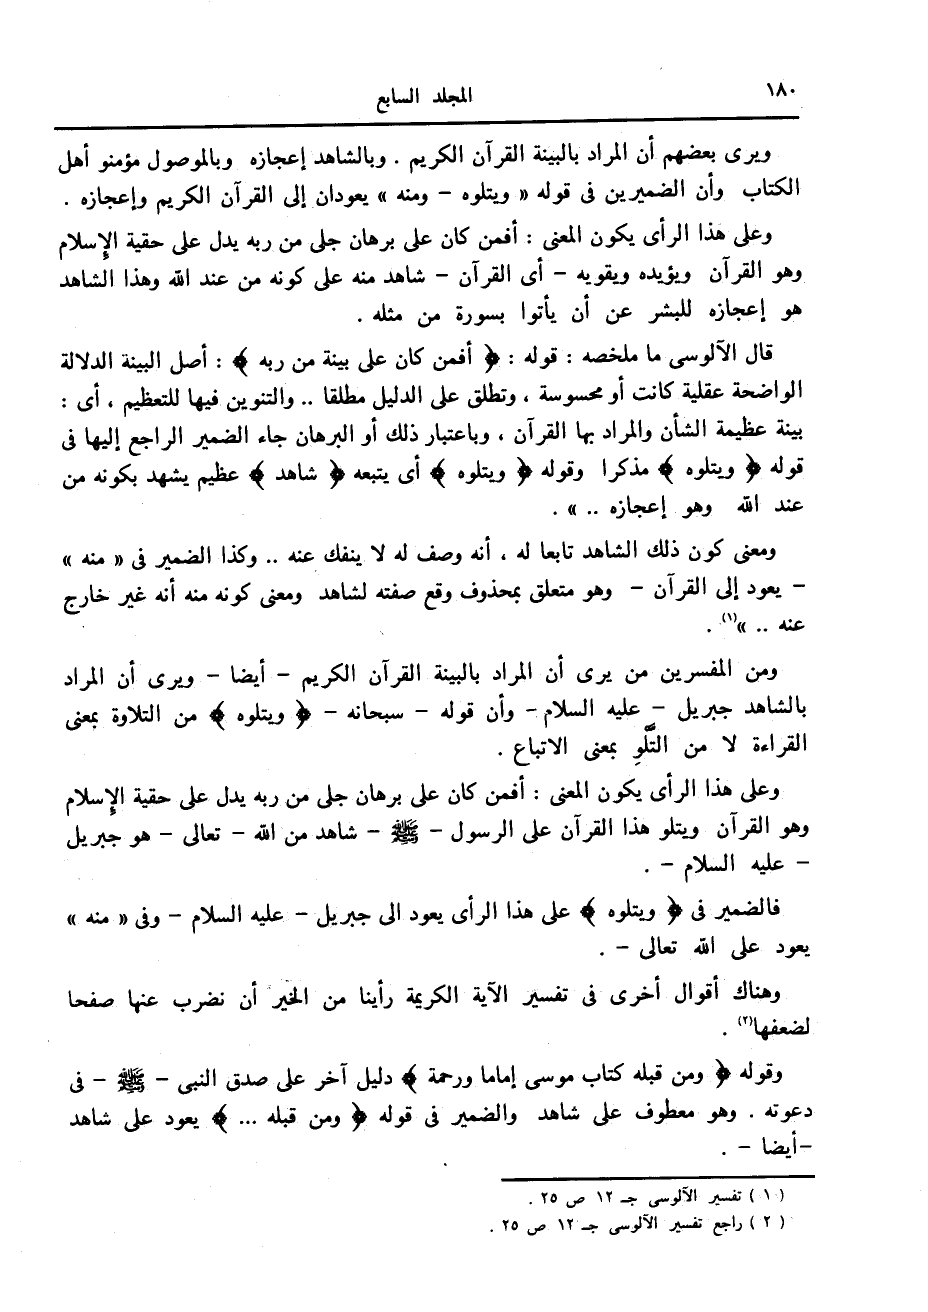 ١٨٠
المجلد السابع
ويرى بعضهم أن المراد بالبينة القرآن الكريم . وبالشاهد إعجازه وبالموصول مؤمنو أهل
الكتاب وأن الضميرين فى قوله « ويتلوه – ومنه » يعودان إلى القرآن الكريم وإعجازه .
وعلى هذا الرأى يكون المعنى : أفمن كان على برهان جلى من ربه يدل على حقية الإسلام
وهو القرآن ويؤيده ويقويه – أى القرآن – شاهد منه على كونه من عند الله وهذا الشاهد
هو إعجازه للبشر عن أن يأتوا بسورة من مثله .
قال الآلوسى ما ملخصه : قوله : ﴿ أفمن كان على بينة من ربه ﴾ : أصل البينة الدلالة
الواضحة عقلية كانت أو محسوسة ، وتطلق على الدليل مطلقا .. والتنوين فيها للتعظيم ، أى :
بينة عظيمة الشأن والمراد بها القرآن ، وباعتبار ذلك أو البرهان جاء الضمير الراجع إليها فى
قوله ﴿ ويتلوه ﴾ مذكرا وقوله ﴿ ويتلوه ﴾ أى يتبعه ﴿ شاهد ﴾ عظيم يشهد بكونه من
عند الله وهو إعجازه .. » .
ومعنى كون ذلك الشاهد تابعا له ، أنه وصف له لا ينفك عنه .. وكذا الضمير فى « منه »
– يعود إلى القرآن – وهو متعلق بمحذوف وقع صفته لشاهد ومعنى كونه منه أنه غير خارج
عنه .. »(١) .
ومن المفسرين من يرى أن المراد بالبينة القرآن الكريم – أيضا – ويرى أن المراد
بالشاهد جبريل – عليه السلام – وأن قوله – سبحانه – ﴿ ويتلوه ﴾ من التلاوة بمعنى
القراءة لا من التَّلُّوِ بمعنى الاتباع .
وعلى هذا الرأى يكون المعنى : أفمن كان على برهان جلى من ربه يدل على حقية الإسلام
وهو القرآن ويتلو هذا القرآن على الرسول – ﷺ – شاهد من الله – تعالى – هو جبريل
– عليه السلام – .
فالضمير فى ﴿ ويتلوه ﴾ على هذا الرأى يعود الى جبريل – عليه السلام – وفى « منه »
يعود على الله تعالى – .
وهناك أقوال أخرى فى تفسير الآية الكريمة رأينا من الخير أن نضرب عنها صفحا
لضعفها(٢) .
وقوله ﴿ ومن قبله كتاب موسى إماما ورحمة ﴾ دليل آخر على صدق النبى – ﷺ – فى
دعوته . وهو معطوف على شاهد والضمير فى قوله ﴿ ومن قبله ... ﴾ يعود على شاهد
–أيضا – .
( ١ ) تفسير الآلوسى جـ ١٢ ص ٢٥ .
( ٢ ) راجع تفسير الآلوسى جـ ١٢ ص ٢٥ .